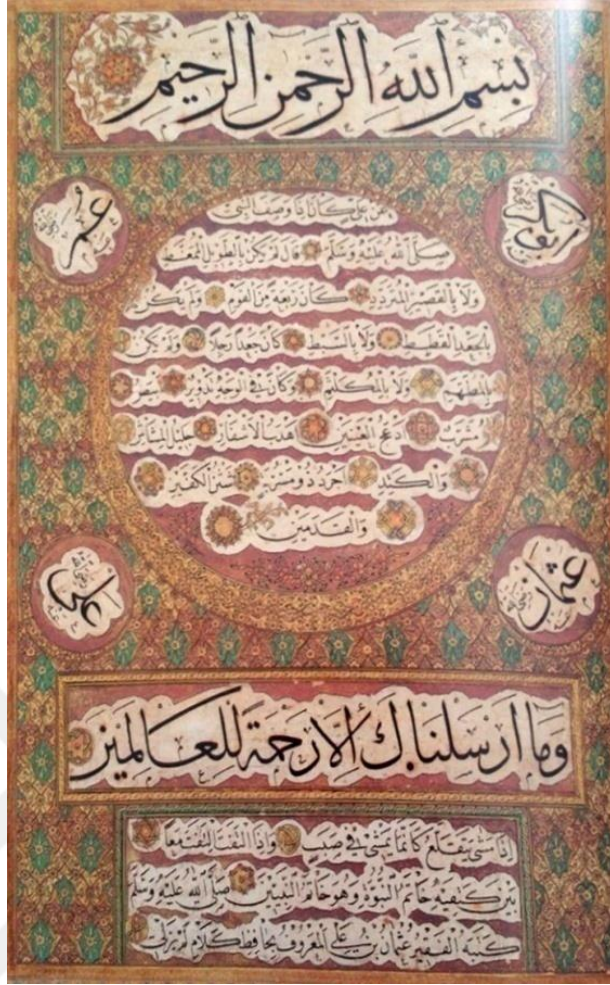 بسم الله الرحمن الرحيم
ابوبكر
عمر
عن علي كان اذا وصف النبي
صلى الله عليه وسلم قال لم يكن بالطويل الممغط
ولا بالقصير المتردد كان ربعة من القوم ولم يكن
بالجعد القطط ولا بالسبط كان جعدا رجلا ولم يكن
بالمطهم ولا بالمكلثم وكان في الوجه تدوير ابيض
مشرب ادعج العينين اهدب الاشفار جليل المشاش
والكتد اجرد ذو مسربة شثن الكفين
والقدمين
عثمان
علي
وما ارسلناك الا رحمة للعالمين
اذا مشى يتقلع كانما يمشي في صبب واذا التفت التفت معا
بين كتفيه خاتم النبوة وهو خاتم النبيين صلى الله عليه وسلم
كتبه الفقير عثمان بن علي المعروف بحافظ كلام لم يزلي